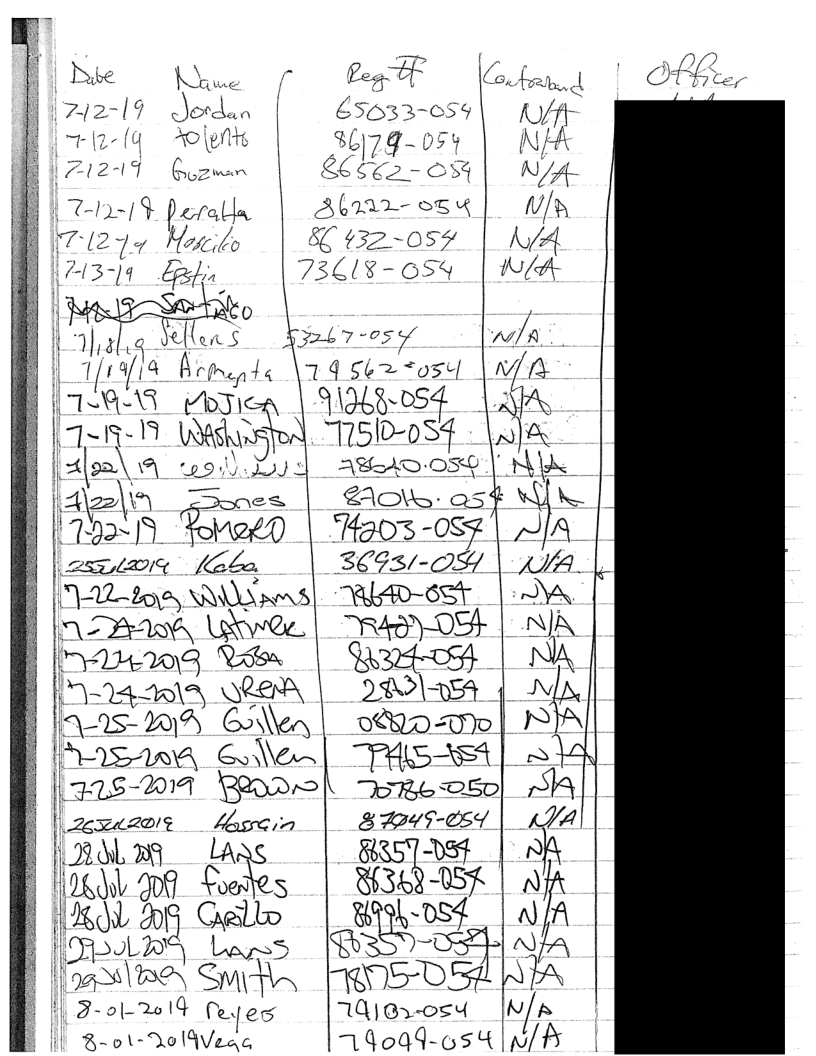 Date Name Reg # Contraband Officer
7-12-19 Jordan 65033-054 N/A
7-12-19 tolento 86179-054 N/A
7-12-19 Guzman 86562-054 N/A
7-12-19 Peralta 86222-054 N/A
7-12-19 86432-054 N/A
7-13-19 Epstin 73618-054 N/A
7/18/19 Sellers 53267-054 N/A
7/19/19 Armenta 79562-054 N/A
7-19-19 MOJICA 91268-054 N/A
7-19-19 WASHINGTON 77510-054 N/A
7/22/19 78640-054 N/A
7/22/19 Jones 87016-054 N/A
7-22-19 ROMERO 74203-054 N/A
25JUL2019 Kaba 36931-054 N/A
7-22-2019 WILLIAMS 78640-054 N/A
7-24-2019 LATIMER 79427-054 N/A
7-24-2019 ROSA 86324-054 N/A
7-24-2019 URENA 28631-054 N/A
7-25-2019 Guillen 08820-070 N/A
7-25-2019 Guillen 79465-054 N/A
7-25-2019 BROWN 70786-050 N/A
26JUL2019 Hossain 87049-054 N/A
28 Jul 2019 LANS 86357-054 N/A
28 Jul 2019 fuentes 86368-054 N/A
28 Jul 2019 CARILLO 86996-054 N/A
29 JUL 2019 LANS 86357-054 N/A
29 Jul 2019 SMITH 78175-054 N/A
8-01-2019 reyes 79102-054 N/A
8-01-2019 Vega 79099-054 N/A